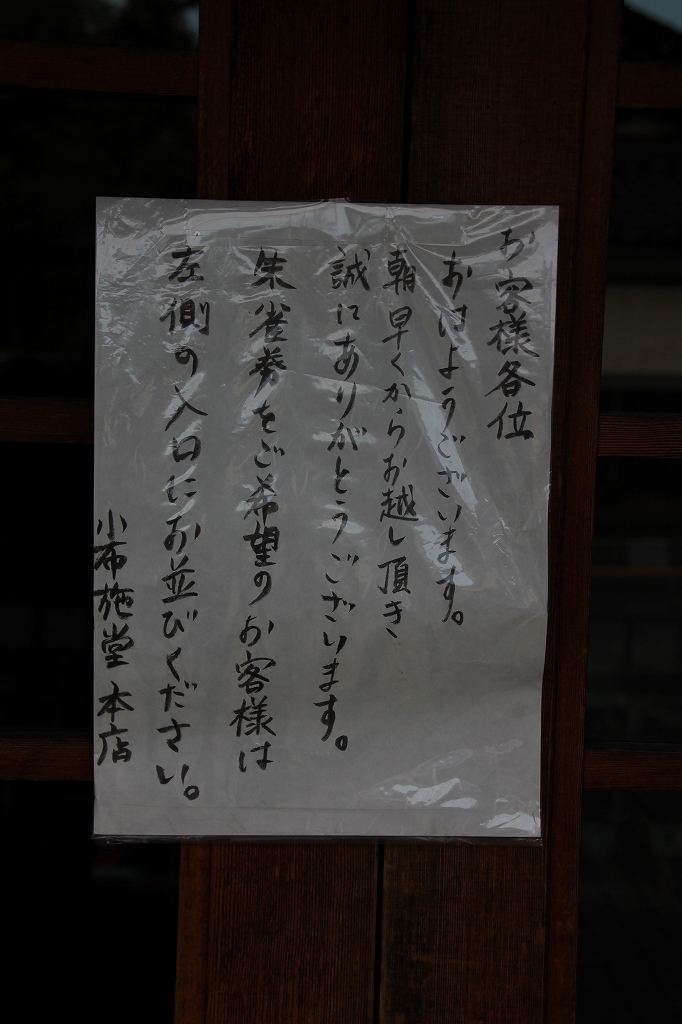 お客様各位
おはようございます。
朝早くからお越し頂き、
誠にありがとうございます。
朱雀券をご希望のお客様は
左側の入口にお並びください。
小布施堂 本店